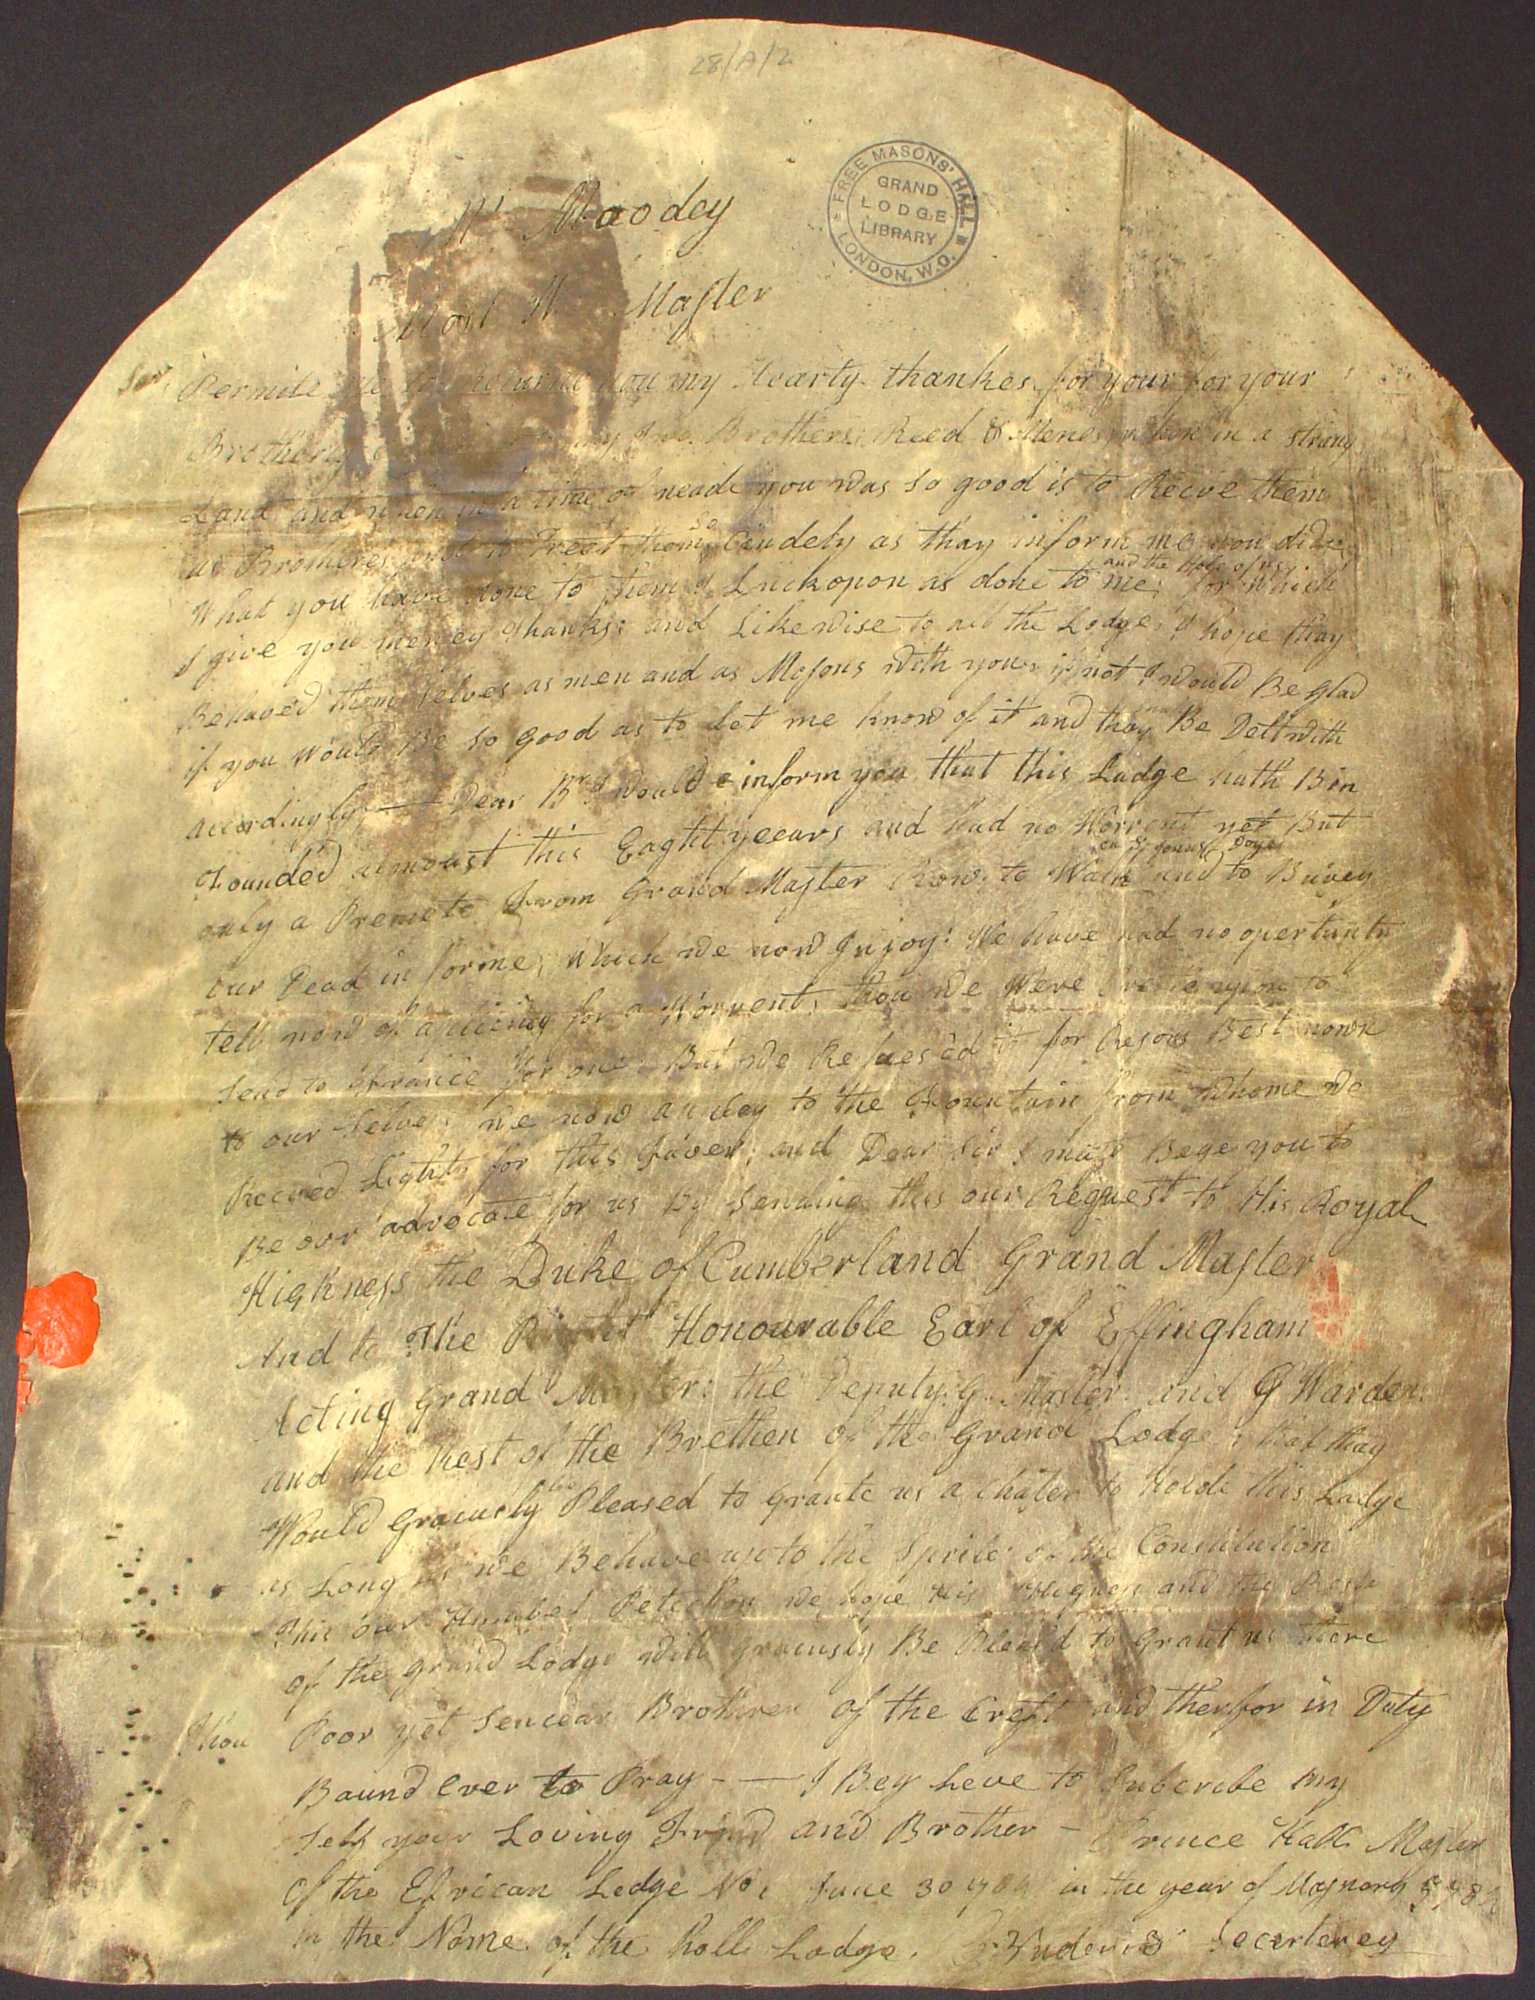 28/A/2
FREE MASONS' HALL
GRAND
LODGE
LIBRARY
LONDON, W.C.
Moodey
Most W Master
Permite me to you my Hearty thankes for your for your
Brotherly my two Brothers Reed & Menes when in a strang
Land and when in a time of neade you was so good is to Recive them
as Brothers and to Treet them so Cindely as thay inform me you did
and the hole of us
What you have done to them I Luickopon as done to me; for which
I give you meney thanks: and Likewise to all the Lodge, I hope thay
Behaved them selves as men and as Masons with you if not I would Be glad
if you would Be so good as to let me know of it and thay Be Delt with
accordingly — Dear Br I would inform you that this Ladge hath Bin
Founded almoust this Eaght yeears and had no Worrent yet But
on St Johns Daye
only a Premete from Grand Master Row to Walk and to Buirey
our Dead in forme, which we now Injoy: We have had no opertunty
tell now of apliing for a Worrent, thou we Were upon to
send to France for one But we Refuesed it for Resons Best nown
to our Selves we now to the Fountain from whome we
Receved Light for this Faver: and Dear Sir I must Bege you to
Be our advocate for us By sending this our Request to His Royal
Highness the Duke of Cumberland Grand Master
And to The Right Honourable Earl of Effingham
Acting Grand Master: the Deputy G Master and G Warden
and the Rest of the Brethen of the Grand Lodge; that thay
be
Would Graciusly Pleased to grante us a chater to Holde this Ladge
as Long as we Behave up to the Sprite of the Constitution
This our Humbel Petetion we hope His Higness and the Rest
of the Grand Lodge will graciusly Be Pleas'd to Grant us there
Thou Poor yet Sencear Brothren of the Creft and therfor in Duty
Baund Ever to Pray - — I Beg Leve to Subcribe my
Self your Loving Frind and Brother - Prince Hall Master
of the Efrican Ledge No 1 June 30 in the year of Masnary
in the Name of the holl Lodge. Secerterey